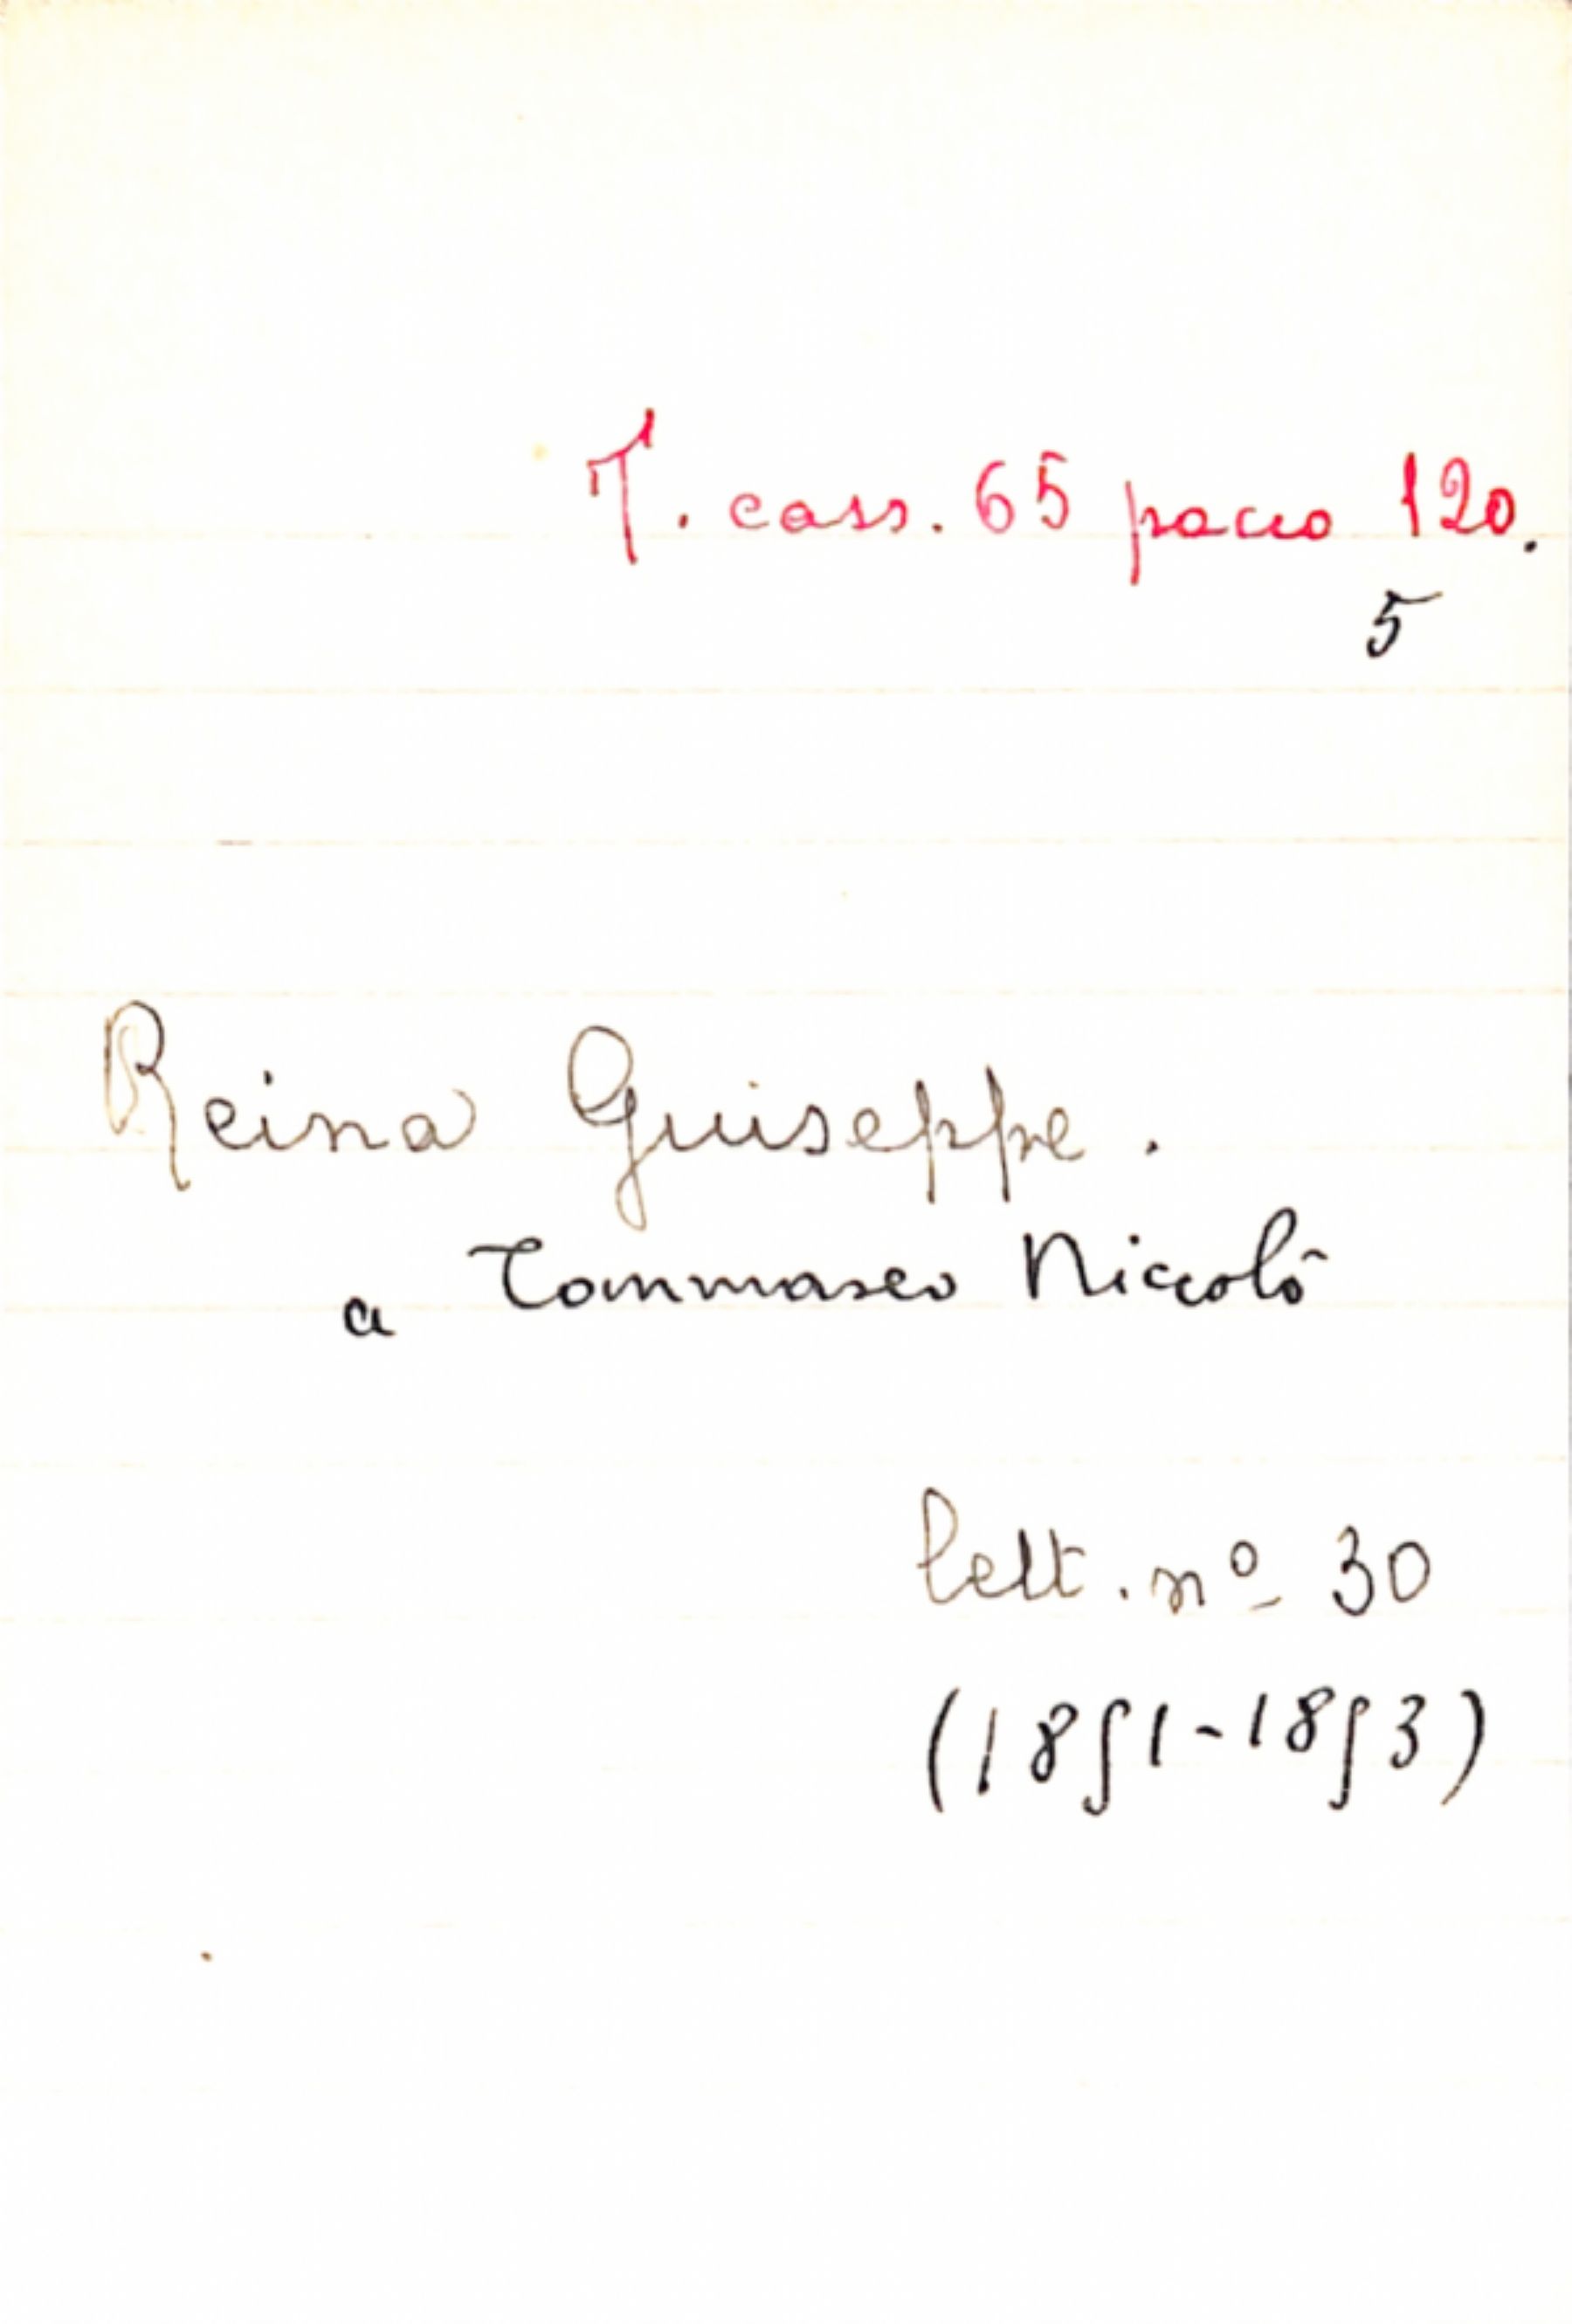 T. cass. 65 pacco 120.
5
Reina Giuseppe.
a Tommaseo Niccolò
lett. nº 30
(1851-1853)